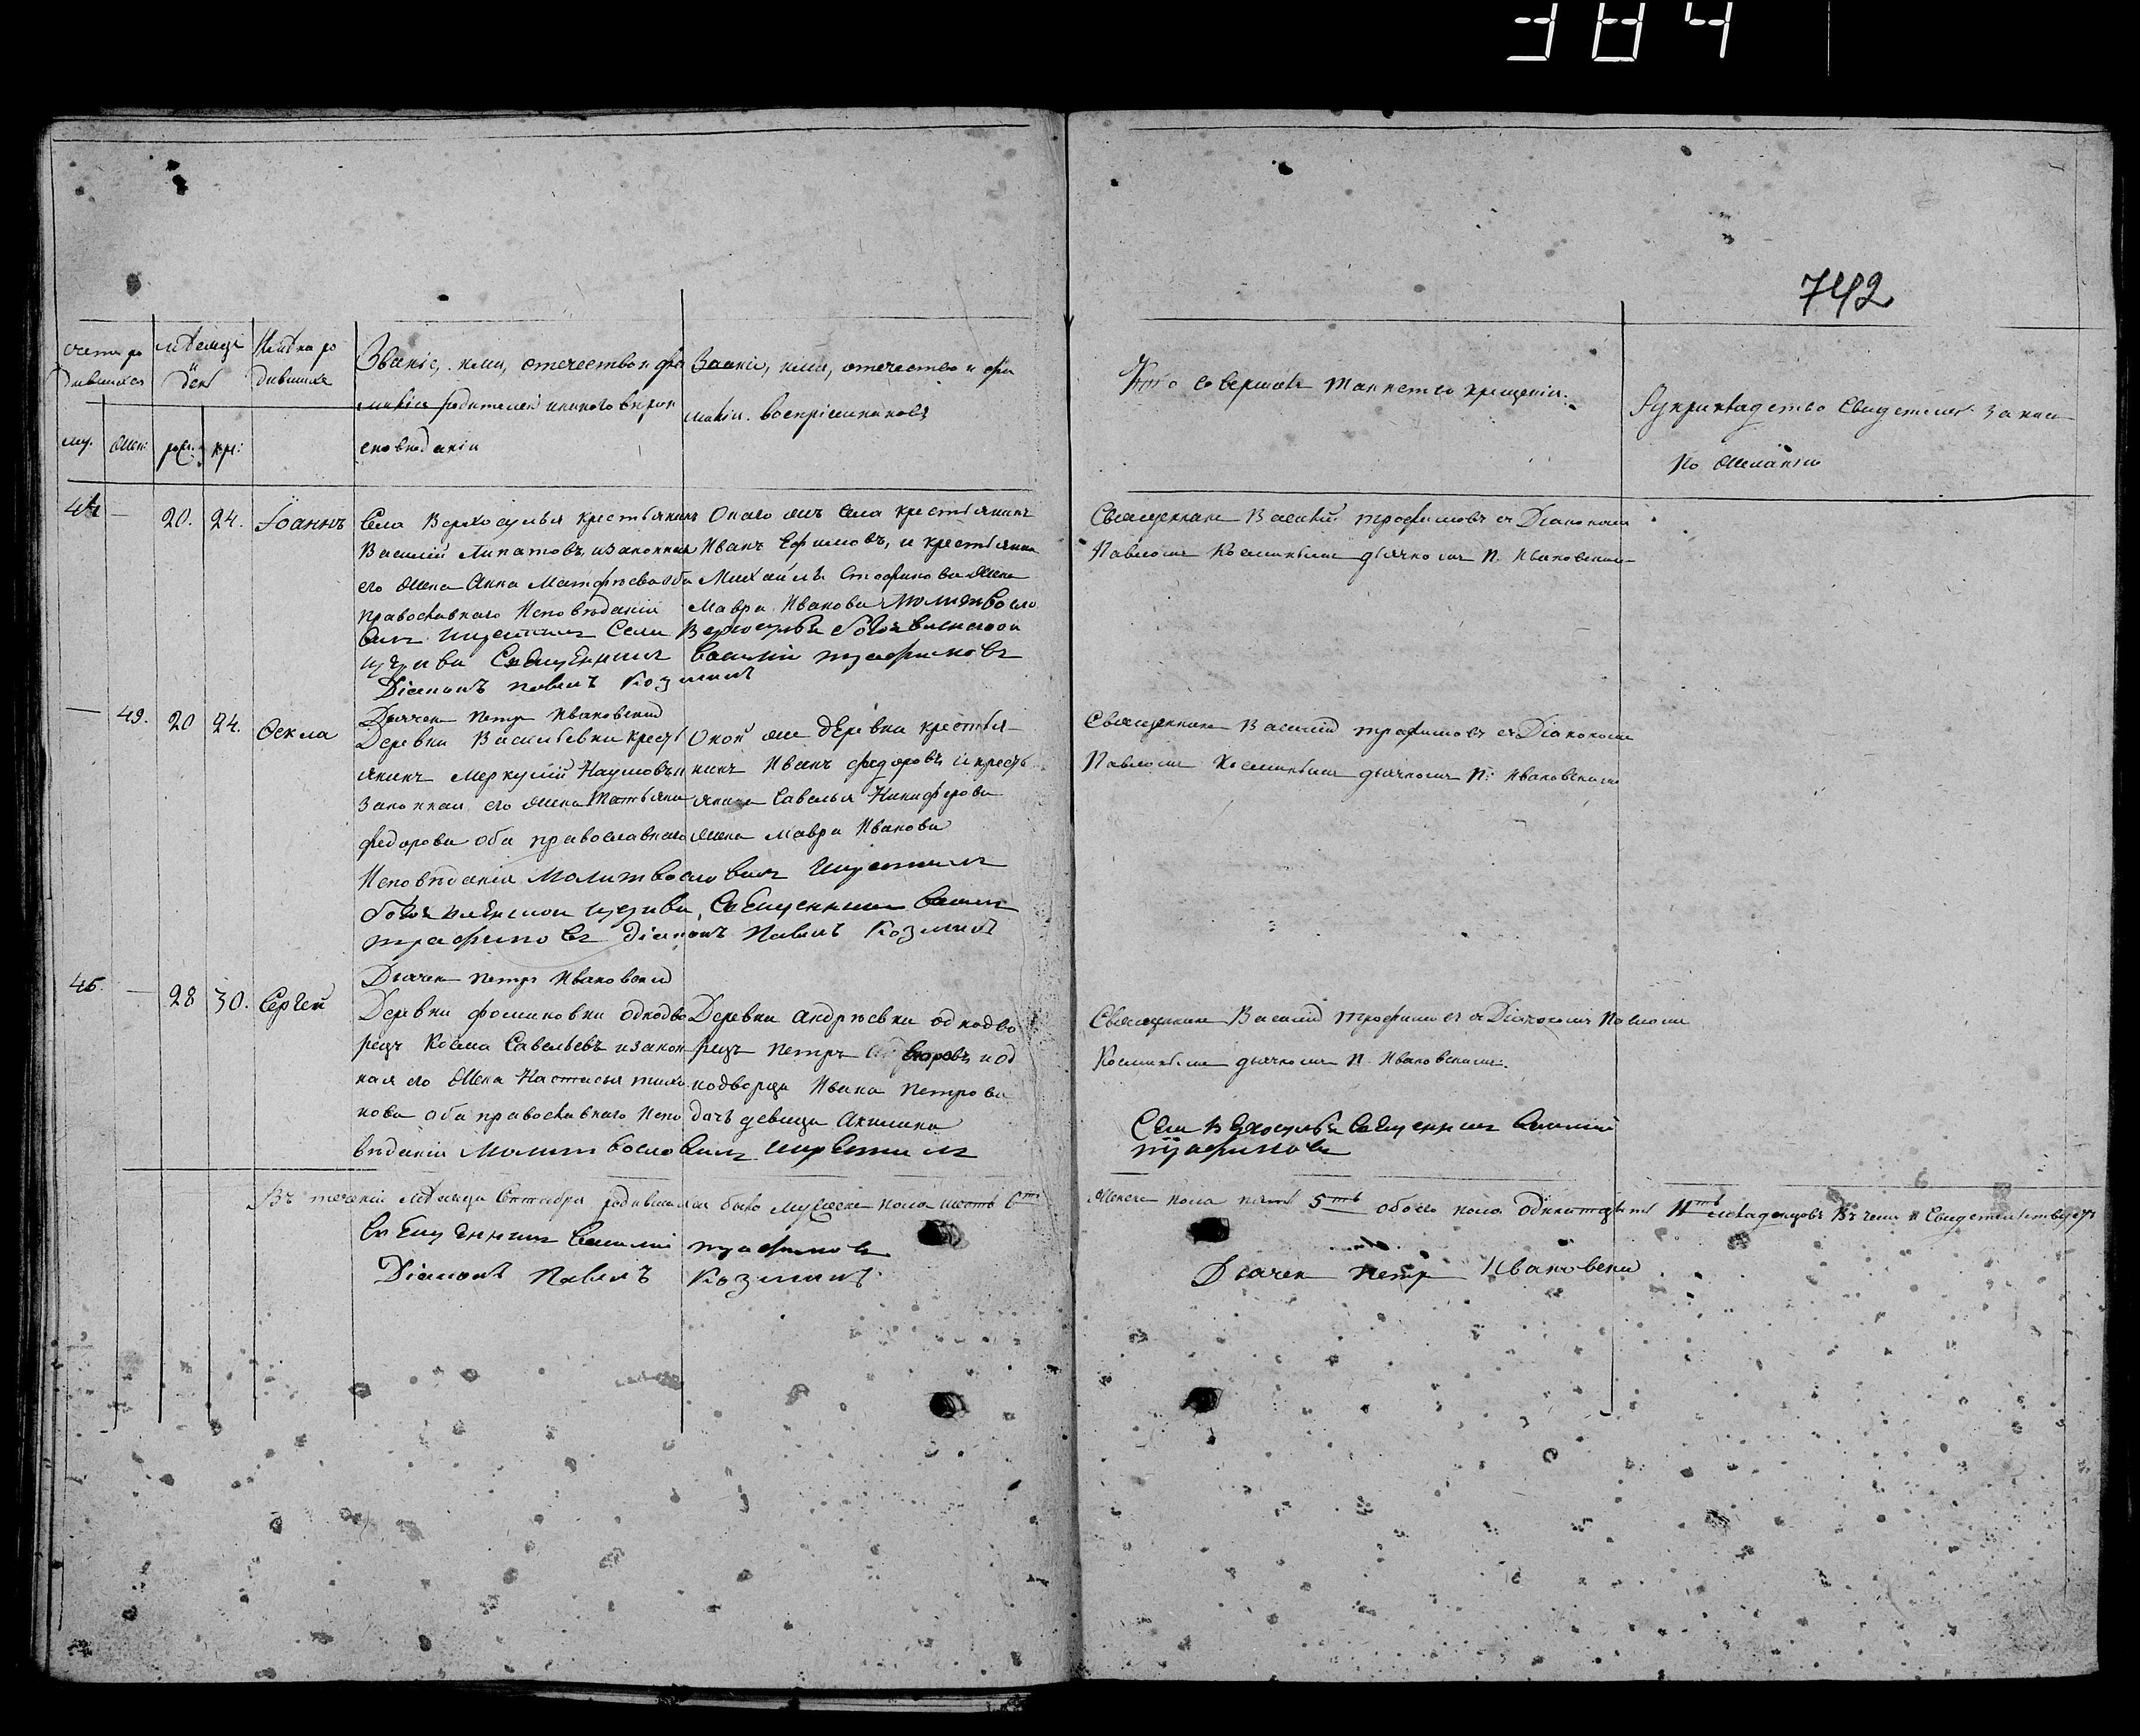 384
742
Счетъ ро
дившихся
мѣсяцъ
и
день
Имѣна ро
дившихся
Званіе, имя, отечество и фа
милія родителей и какого вѣрои
сповѣданія
Званіе, имя, отечество и фа
милія воспріемниковъ
Кто совершалъ таинство крещенія.
Рукприкладство свидетелей записи
по желанію
му. жен: рож: кре:
44 — 20. 24. Іоаннъ
Села Верхосулья крестьянинъ
Василий Липатовъ, и законная
его жена Анна Матфѣева оба
православнаго Исповѣданія
Онаго жъ села крестьянинъ
Иванъ Ефимовъ, и крестьянина
Михаила жена
Мавра Иванова Молитвосло
вилъ
Села Верхосулья
церкви Священникъ Василій Трафимовъ
Діаконъ Павелъ Козминъ
Дьячекъ Петръ Ивановский
Священникъ Василий Трофимовъ съ Діакономъ
Павломъ Косминымъ дьячкомъ П. Ивановскимъ
— 49. 20 24. Фекла
Деревни Васильевки крестъ
янинъ Меркулий Наумовъ и
законная его жена Татьяна
Федорова оба православнаго
Исповѣданія Молитвословилъ
Оной же деревни крестья-
нинъ Иванъ Федоровъ и кресть
янина Савелья Никифорова
жена Мавра Иванова
церкви, Священникъ Васили
Трафимовъ Діаконъ Павелъ Козминъ
Дьячекъ Петръ Ивановский
Священникъ Василий Трафимовъ съ Діакономъ
Павломъ Косминымъ дьячкомъ П: Ивановскимъ
45. — 28 30. Сергей
Деревни Фоминовки однодво
рецъ Косма Савельевъ и закон
ная его жена Настасья Тихо
нова оба православнаго Испо
вѣданія Молитвословилъ
Деревни Андрѣевки однодво
рецъ Петръ и од
нодворца Ивана Петрова
дочь девица Акилина
Священникъ Василий Трофимовъ съ Діакономъ Павломъ
Косминымъ дьячкомъ П. Ивановскимъ.
Села Верхосулья Священникъ Василий
Трафимовъ
Въ теченіи мѣсяца Сентября родившихся было мужеска пола шесть 6ть
женска пола пять 5ть обоего пола одинадцать 11ть младенцовъ въ чемъ и Свидетельствуемъ
Священникъ Василий Трафимовъ
Діаконъ Павелъ Козминъ
Дьячекъ Петръ Ивановски